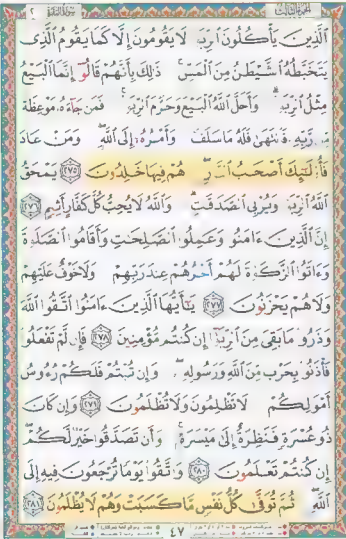 الجزء الثالث سورة البقرة ٢
الَّذِينَ يَأْكُلُونَ الرِّبَا لَا يَقُومُونَ إِلَّا كَمَا يَقُومُ الَّذِى
يَتَخَبَّطُهُ الشَّيْطَانُ مِنَ الْمَسِّ ذَٰلِكَ بِأَنَّهُمْ قَالُوا إِنَّمَا الْبَيْعُ
مِثْلُ الرِّبَا وَأَحَلَّ اللَّهُ الْبَيْعَ وَحَرَّمَ الرِّبَا فَمَن جَاءَهُ مَوْعِظَةٌ
مِّن رَّبِّهِ فَانتَهَىٰ فَلَهُ مَا سَلَفَ وَأَمْرُهُ إِلَى اللَّهِ وَمَنْ عَادَ
فَأُولَٰئِكَ أَصْحَابُ النَّارِ هُمْ فِيهَا خَالِدُونَ ٢٧٥ يَمْحَقُ
اللَّهُ الرِّبَا وَيُرْبِى الصَّدَقَاتِ وَاللَّهُ لَا يُحِبُّ كُلَّ كَفَّارٍ أَثِيمٍ ٢٧٦
إِنَّ الَّذِينَ ءَامَنُوا وَعَمِلُوا الصَّالِحَاتِ وَأَقَامُوا الصَّلَاةَ
وَءَاتَوُا الزَّكَاةَ لَهُمْ أَجْرُهُمْ عِندَ رَبِّهِمْ وَلَا خَوْفٌ عَلَيْهِمْ
وَلَا هُمْ يَحْزَنُونَ ٢٧٧ يَا أَيُّهَا الَّذِينَ ءَامَنُوا اتَّقُوا اللَّهَ
وَذَرُوا مَا بَقِىَ مِنَ الرِّبَا إِن كُنتُم مُّؤْمِنِينَ ٢٧٨ فَإِن لَّمْ تَفْعَلُوا
فَأْذَنُوا بِحَرْبٍ مِّنَ اللَّهِ وَرَسُولِهِ وَإِن تُبْتُمْ فَلَكُمْ رُءُوسُ
أَمْوَالِكُمْ لَا تَظْلِمُونَ وَلَا تُظْلَمُونَ ٢٧٩ وَإِن كَانَ
ذُو عُسْرَةٍ فَنَظِرَةٌ إِلَىٰ مَيْسَرَةٍ وَأَن تَصَدَّقُوا خَيْرٌ لَّكُمْ
إِن كُنتُمْ تَعْلَمُونَ ٢٨٠ وَاتَّقُوا يَوْمًا تُرْجَعُونَ فِيهِ إِلَى
اللَّهِ ثُمَّ تُوَفَّىٰ كُلُّ نَفْسٍ مَّا كَسَبَتْ وَهُمْ لَا يُظْلَمُونَ ٢٨١
٤٧